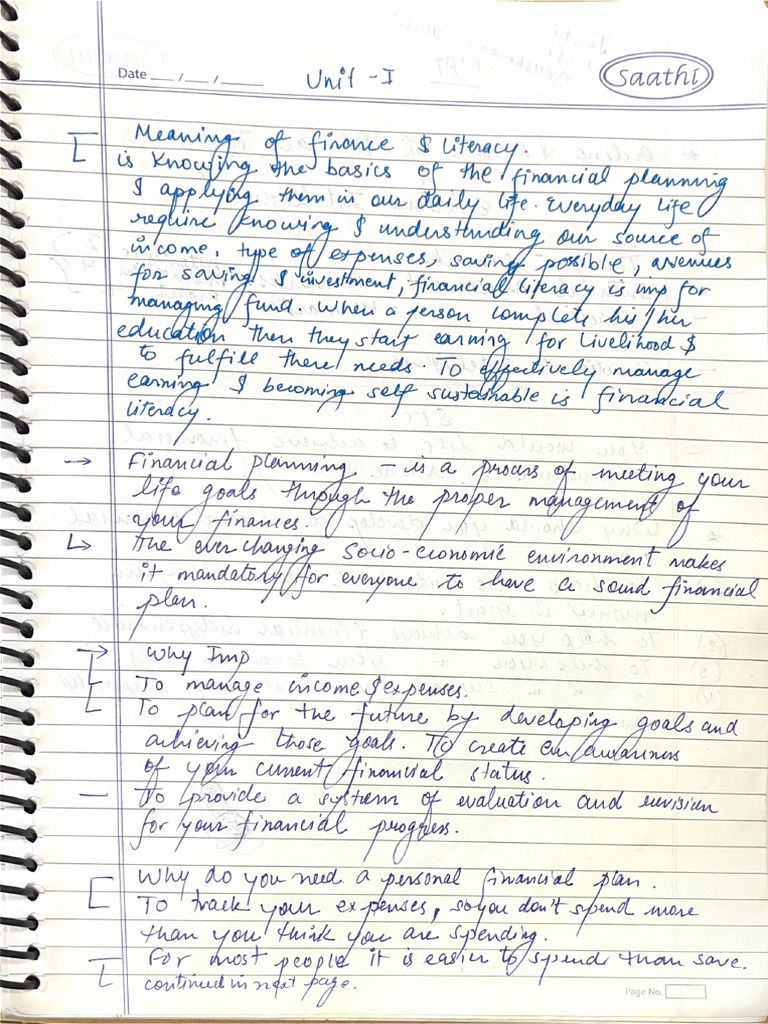 Date __/__/____ Unit - I saathi
Meaning of finance & Literacy.
is knowing the basics of the financial planning
& applying them in our daily life. Everyday life
require knowing & understanding our source of
income, type of expenses, saving possible, avenues
for saving & investment, financial literacy is imp for
managing fund. When a person complete his/her
education then they start earning for Livelihood &
to fulfill there needs. To effectively manage
earning & becoming self sustainable is financial
literacy.
→ Financial planning - is a process of meeting your
life goals through the proper management of
your finances.
↳ The ever changing socio-economic environment makes
it mandatory for everyone to have a sound financial
plan.
→ Why Imp
To manage income & expenses.
To plan for the future by developing goals and
achieving those goals. To create an awareness
of your current financial status.
— To provide a system of evaluation and revision
for your financial progress.
Why do you need a personal financial plan.
To track your expenses, so you don't spend more
than you think you are spending.
For most people it is easier to spend than save.
continued in next page.
Page No.